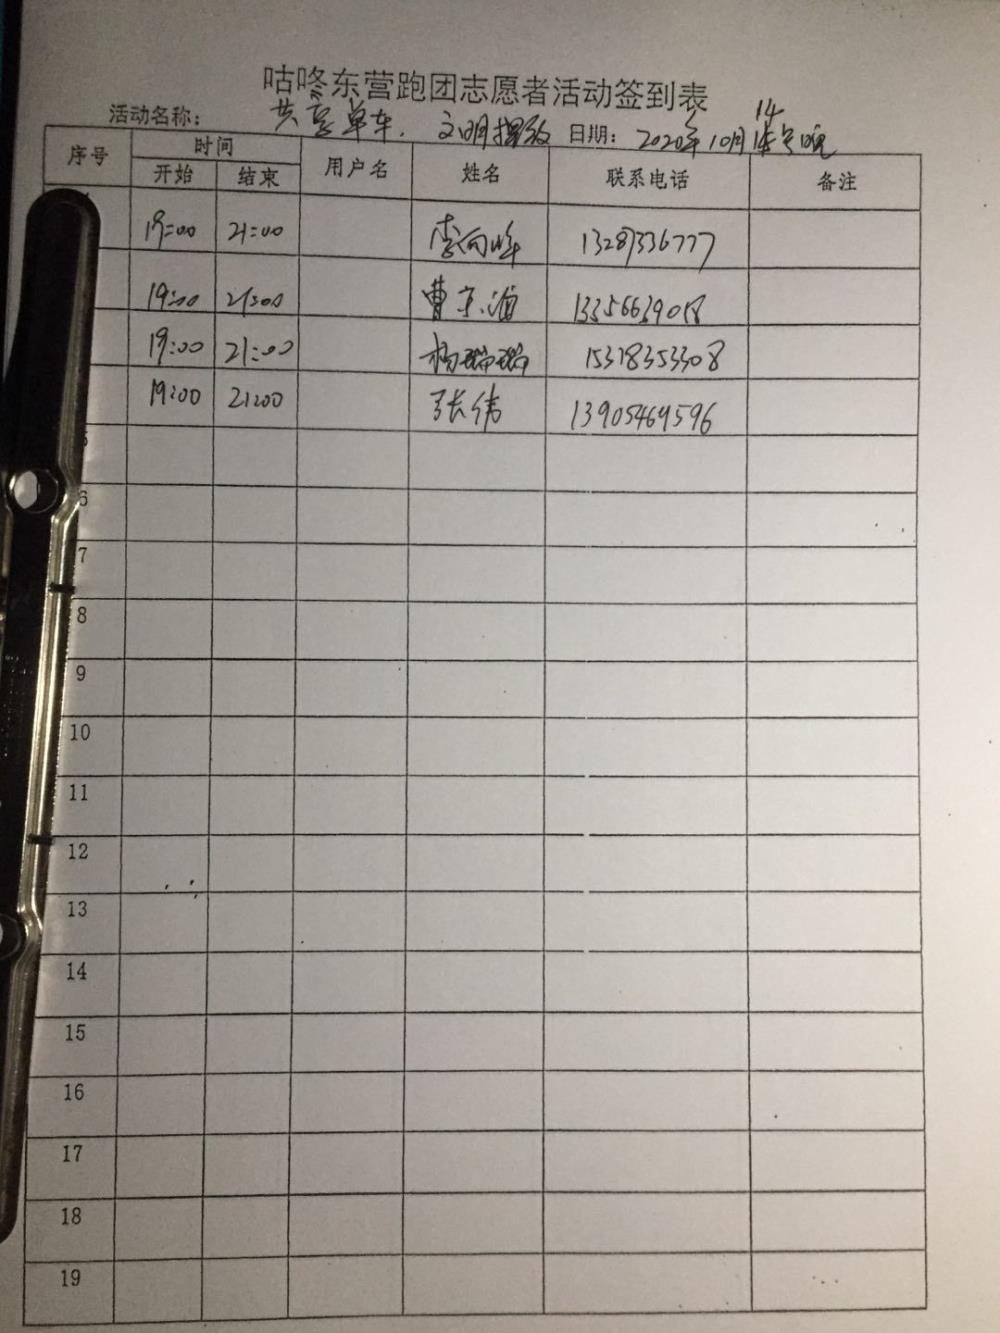 咕咚东营跑团志愿者活动签到表
活动名称： 共享单车，文明摆放 日期： 2020年10月14号晚
序号 时间 用户名 姓名 联系电话 备注
开始 结束
19:00 21:00 李向峰 13287336777
19:00 21:00 曹 13356639018
19:00 21:00 杨瑞瑞 15318353308
19:00 21:00 张伟 13905469596
6
7
8
9
10
11
12
13
14
15
16
17
18
19